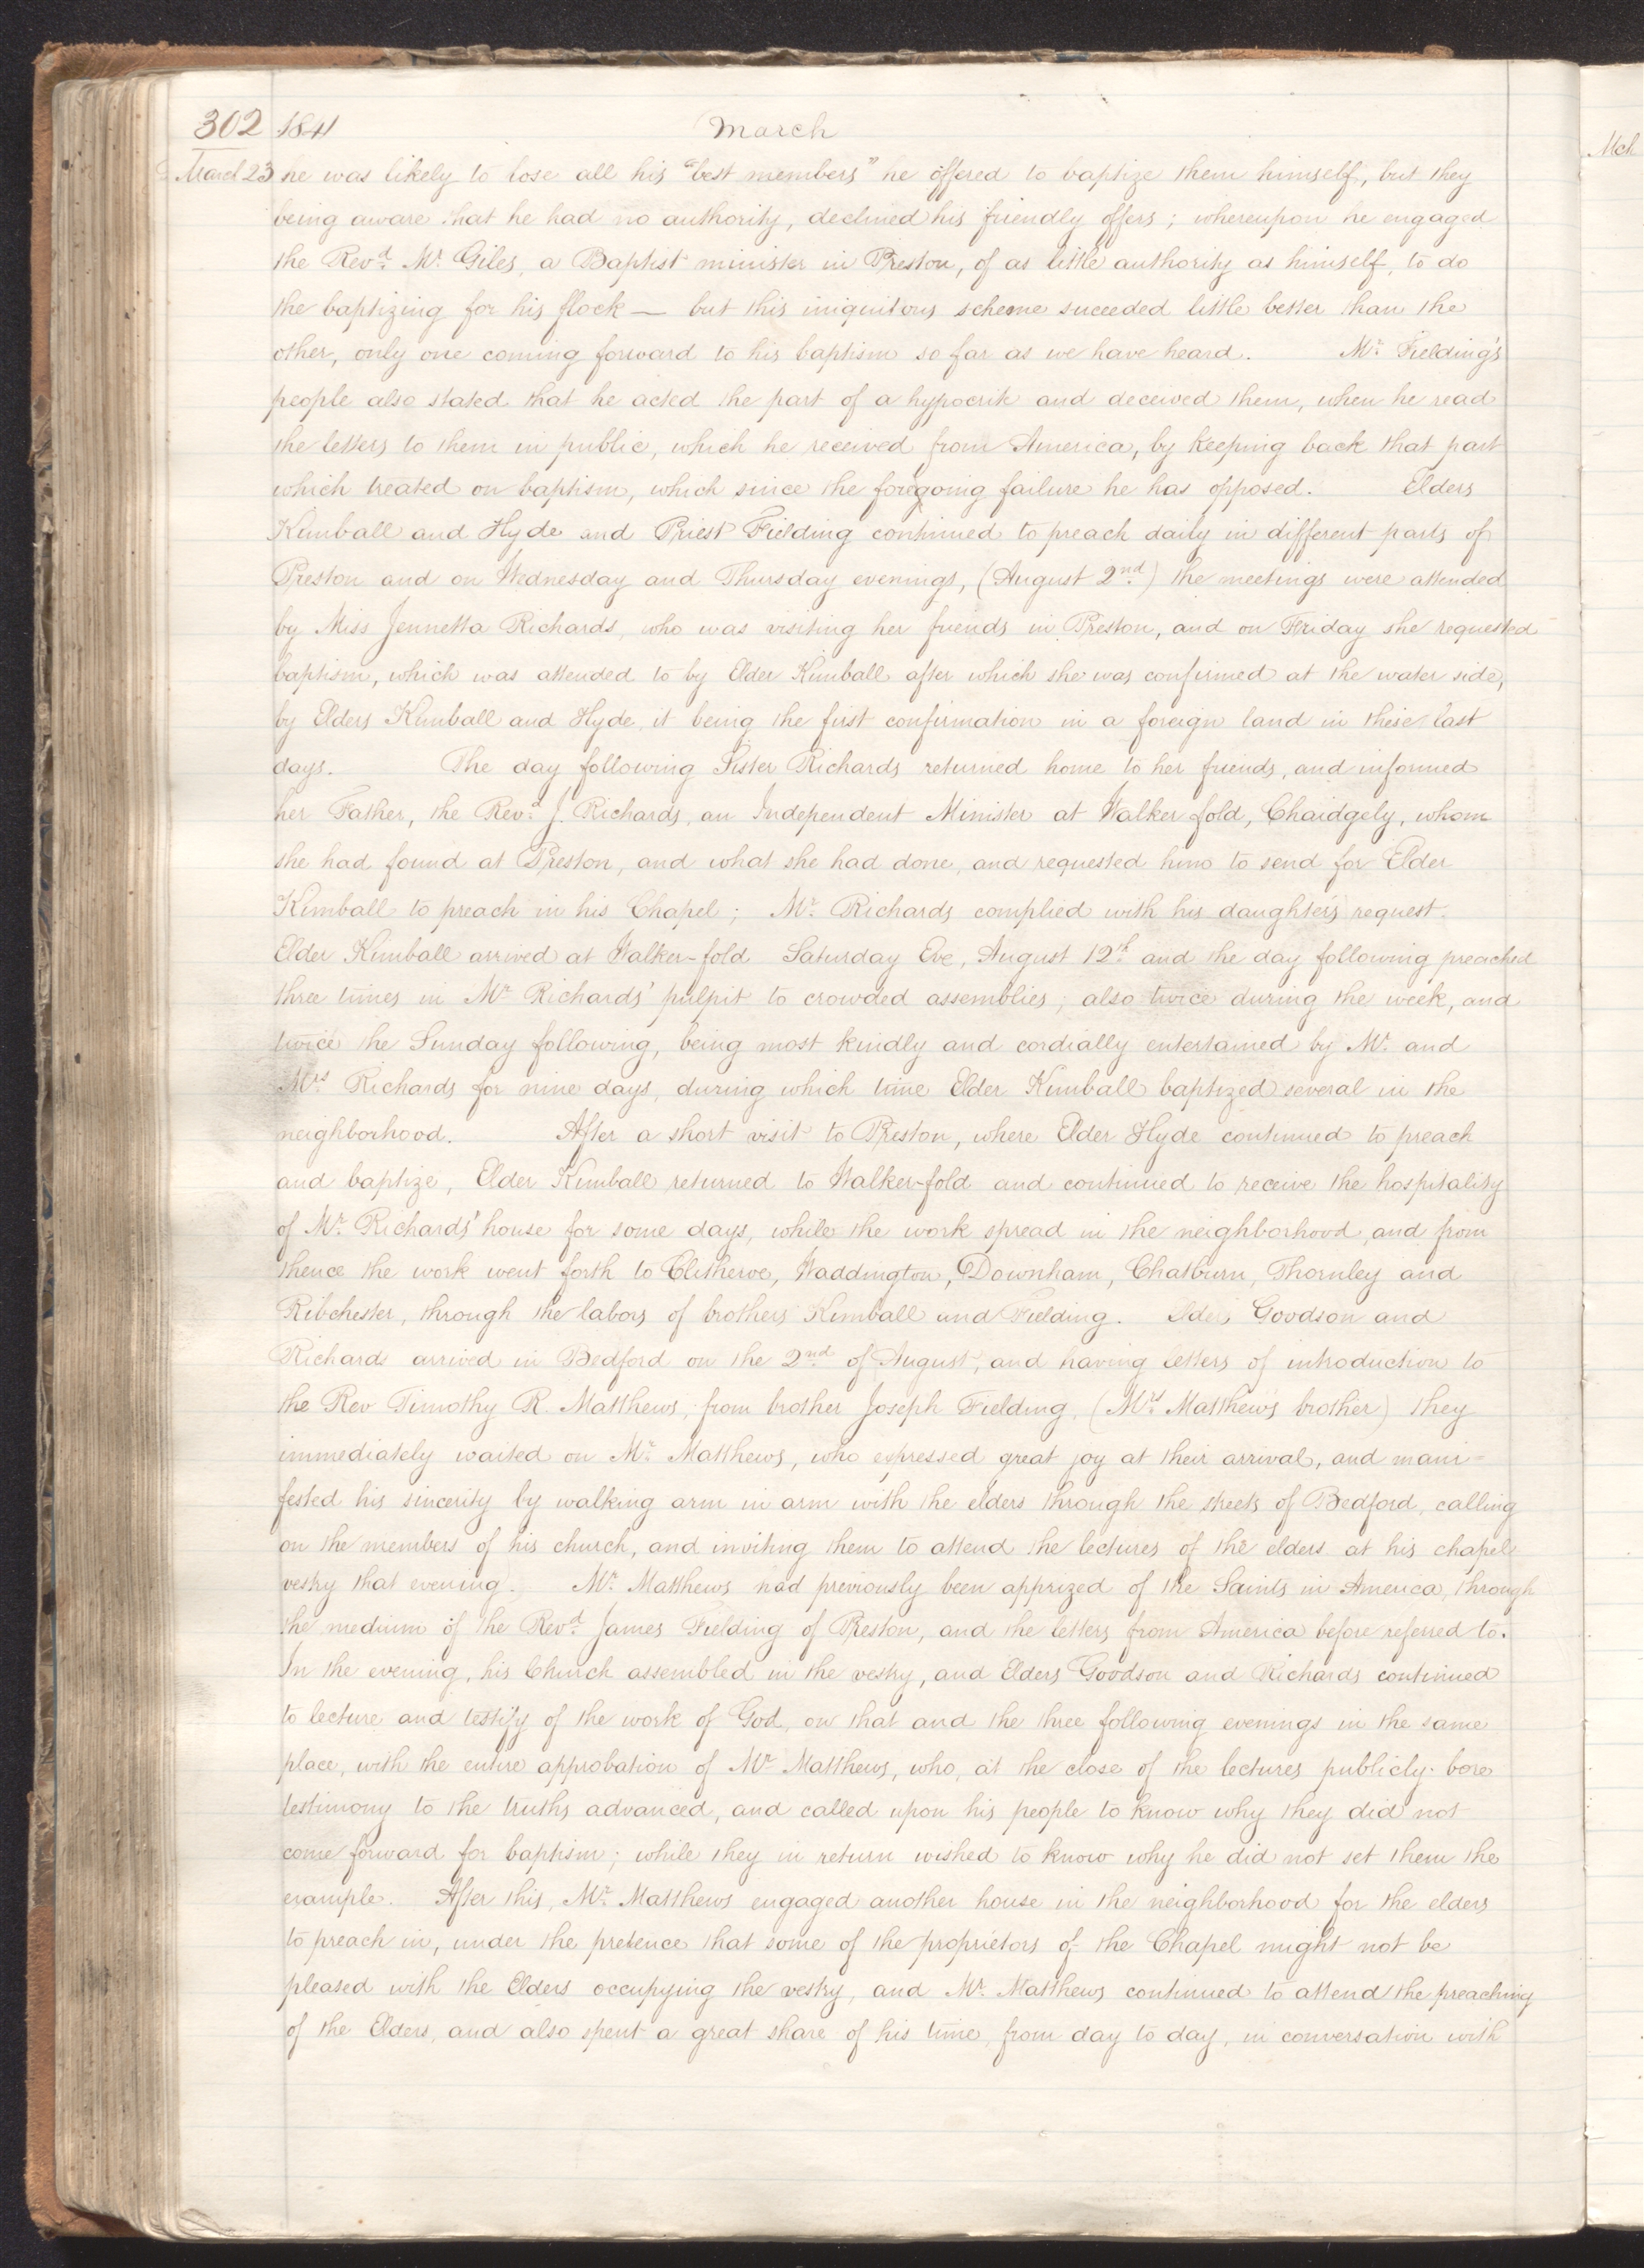 302 1841 March
March 23 he was likely to lose all his "best members" he offered to baptize them himself, but they
being aware that he had no authority, declined his friendly offers; whereupon he engaged
the Revd. Mr. Giles, a Baptist minister in Preston, of as little authority as himself, to do
the baptizing for his flock — but this iniquitous scheme succeeded little better than the
other, only one coming forward to his baptism so far as we have heard. Mr. Fielding's
people also stated that he acted the part of a hypocrite and deceived them, when he read
the letters to them in public, which he received from America, by keeping back that part
which treated on baptism, which since the foregoing failure he has opposed. Elders
Kimball and Hyde and Priest Fielding continued to preach daily in different parts of
Preston and on Wednesday and Thursday evenings, (August 2nd.) the meetings were attended
by Miss Jennetta Richards, who was visiting her friends in Preston, and on Friday she requested
baptism, which was attended to by Elder Kimball after which she was confirmed at the water side,
by Elders Kimball and Hyde, it being the first confirmation in a foreign land in these last
days. The day following Sister Richards returned home to her friends, and informed
her Father, the Revd. J. Richards, an Independent Minister at Walker fold, Chaidgely, whom
she had found at Preston, and what she had done, and requested him to send for Elder
Kimball to preach in his Chapel; Mr. Richards complied with his daughter's request.
Elder Kimball arrived at Walker-fold Saturday Eve, August 12th. and the day following preached
three times in Mr. Richards' pulpit to crowded assemblies; also twice during the week, and
twice the Sunday following, being most kindly and cordially entertained by Mr. and
Mrs. Richards for nine days, during which time Elder Kimball baptized several in the
neighborhood. After a short visit to Preston, where Elder Hyde continued to preach
and baptize, Elder Kimball returned to Walker-fold and continued to receive the hospitality
of Mr. Richards' house for some days, while the work spread in the neighborhood, and from
thence the work went forth to Clitheroe, Waddington, Downham, Chatburn, Thornley and
Ribchester, through the labors of brothers Kimball and Fielding. Elders Goodson and
Richards arrived in Bedford on the 2nd. of August, and having letters of introduction to
the Rev Timothy R. Matthews, from brother Joseph Fielding, (Mrs. Matthews brother) they
immediately waited on Mr. Matthews, who expressed great joy at their arrival, and mani-
fested his sincerity by walking arm in arm with the elders through the streets of Bedford, calling
on the members of his church, and inviting them to attend the lectures of the elders at his chapel
vestry that evening. Mr. Matthews had previously been apprized of the Saints in America, through
the medium of the Revd. James Fielding of Preston, and the letters from America before referred to.
In the evening, his Church assembled in the vestry, and Elders Goodson and Richards continued
to lecture and testify of the work of God, on that and the three following evenings in the same
place, with the entire approbation of Mr. Matthews, who, at the close of the lectures publicly bore
testimony to the truths advanced, and called upon his people to know why they did not
come forward for baptism; while they in return wished to know why he did not set them the
example. After this, Mr. Matthews engaged another house in the neighborhood for the elders
to preach in, under the pretence that some of the proprietors of the Chapel might not be
pleased with the Elders occupying the vestry, and Mr. Matthews continued to attend the preaching
of the Elders, and also spent a great share of his time, from day to day, in conversation with
Mch